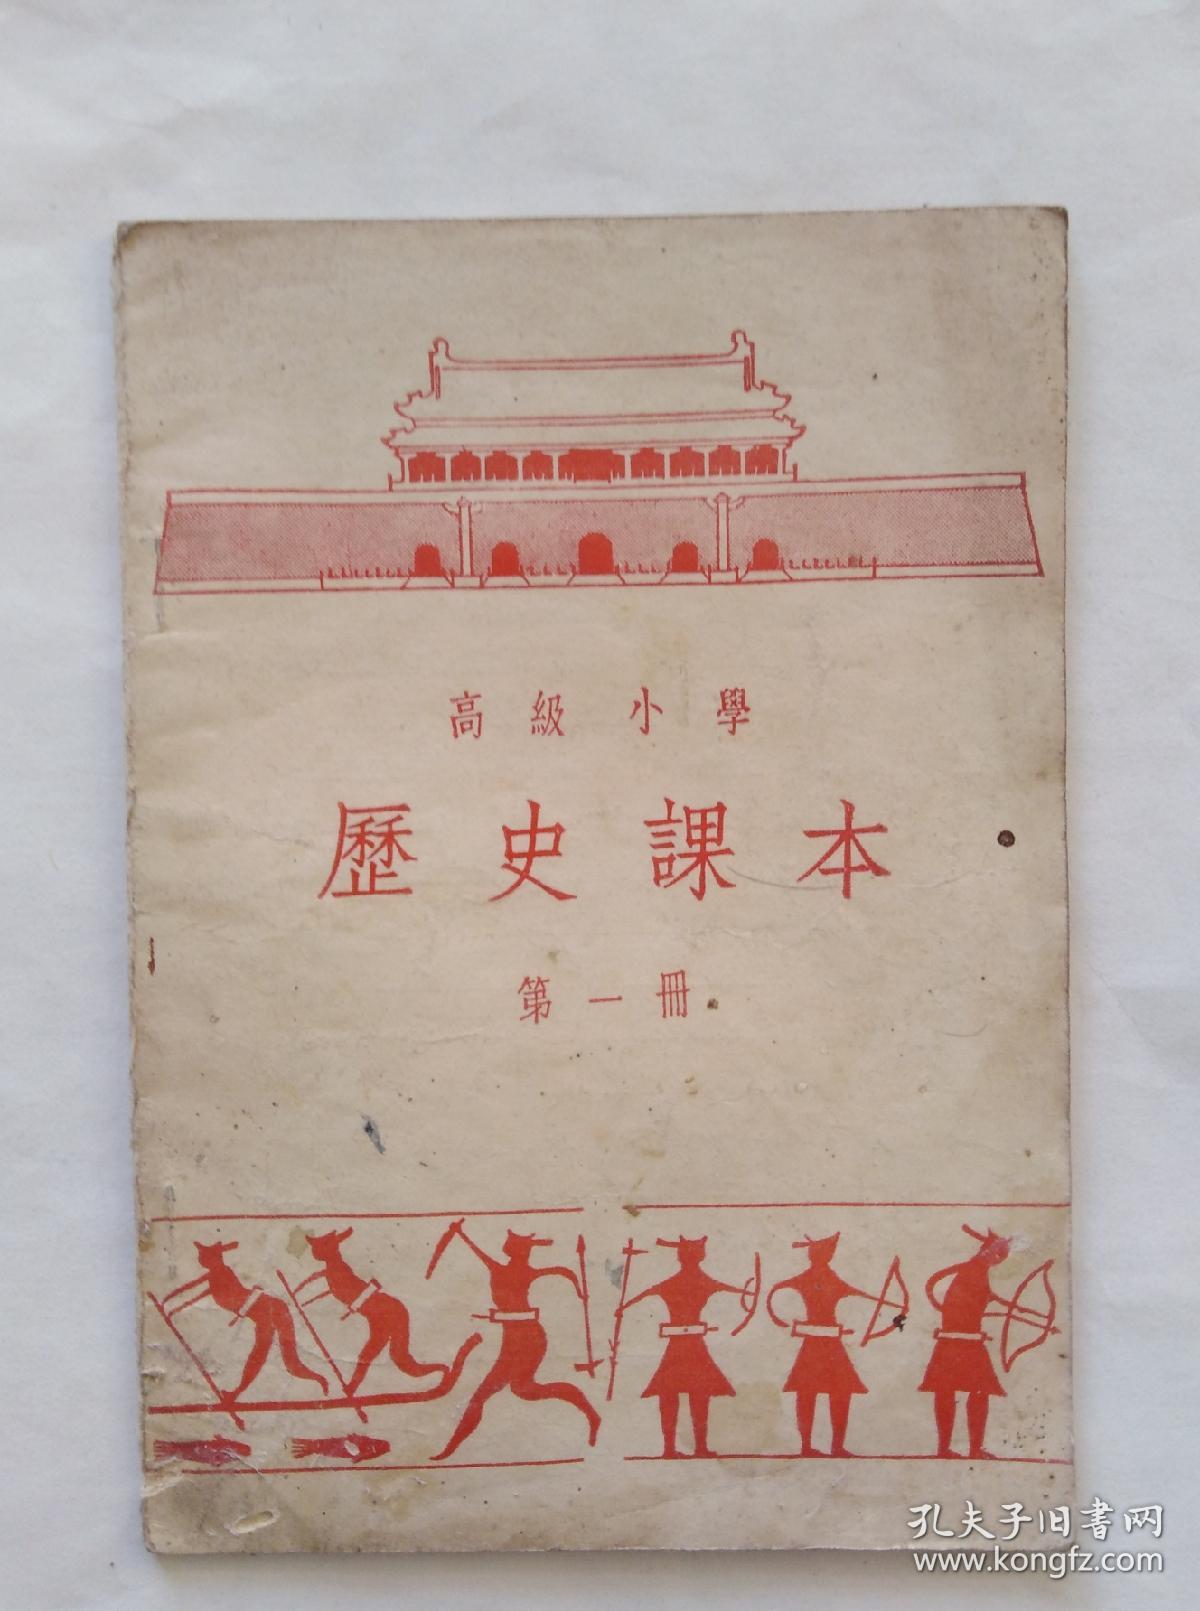 高級小學
歷史課本
第一冊
孔夫子旧書网
www.kongfz.com